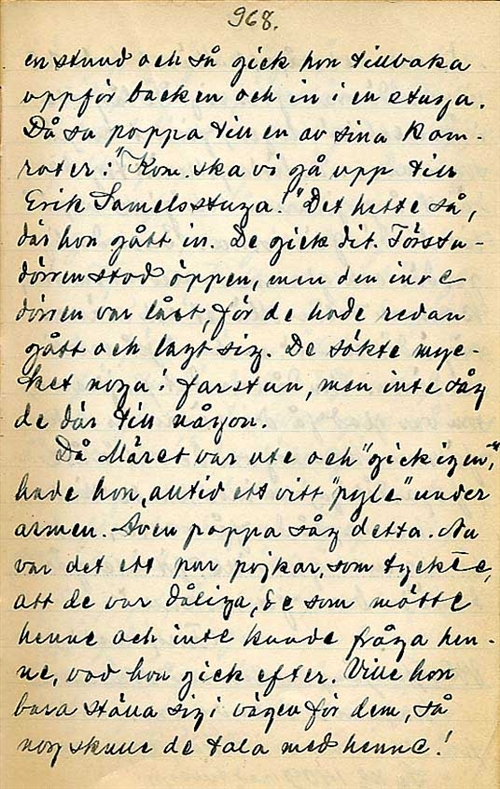 968.
en stund och så gick hon tillbaka
uppför backen och in i en stuga.
Då sa pappa till en av sina kam-
rater: "Kom. ska vi gå upp till
Erik Samelsstuga!" Det hette så,
där hon gått in. De gick dit. Förstu-
dörren stod öppen, men den inre
dörren var låst, för de hade redan
gått och lagt sig. De sökte myc-
ket noga i farstun, men inte såg
de där till någon.
Då Märet var ute och "gick igen,"
hade hon, alltid ett vitt "pyle" under
armen. Även pappa såg detta. Nu
var det ett par pojkar, som tyckte,
att de var dåliga, de som mötte
henne och inte kunde fråga hen-
ne, vad hon gick efter. Ville hon
bara ställa sig i vägen för dem, så
nog skulle de tala med henne!